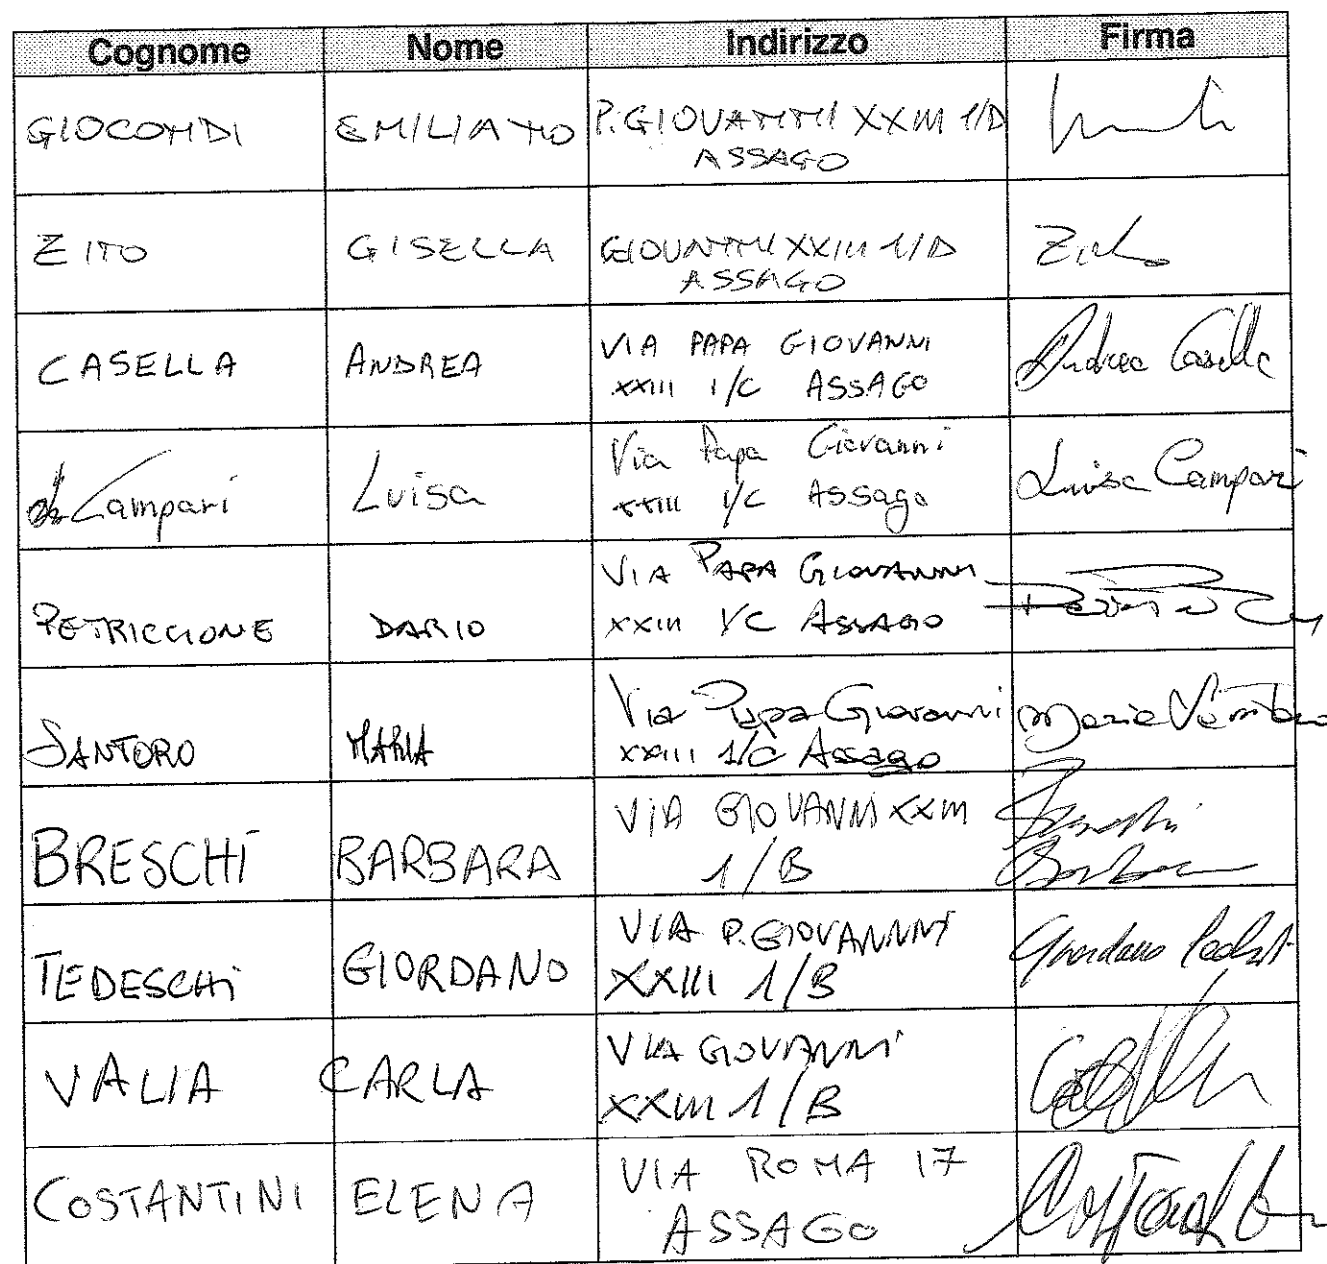 Cognome Nome Indirizzo Firma
GIOCONDI EMILIANO P. GIOVANNI XXIII 1/D
ASSAGO
ZITO GISELLA GIOVANNI XXIII 1/D Zito
ASSAGO
CASELLA ANDREA VIA PAPA GIOVANNI
XXIII 1/C ASSAGO Andrea Casella
Campari Luisa Via Papa Giovanni
XXIII 1/C Assago Luisa Campari
PETRICCIONE DARIO VIA PAPA GIOVANNI
XXIII 1/C ASSAGO
SANTORO MARIA Via Papa Giovanni
XXIII 1/C Assago Maria Santoro
BRESCHI BARBARA VIA GIOVANNI XXIII
1/B Breschi
Barbara
TEDESCHI GIORDANO VIA P. GIOVANNI
XXIII 1/B Giordano Tedeschi
VALIA CARLA VIA GIOVANNI
XXIII 1/B
COSTANTINI ELENA VIA ROMA 17
ASSAGO